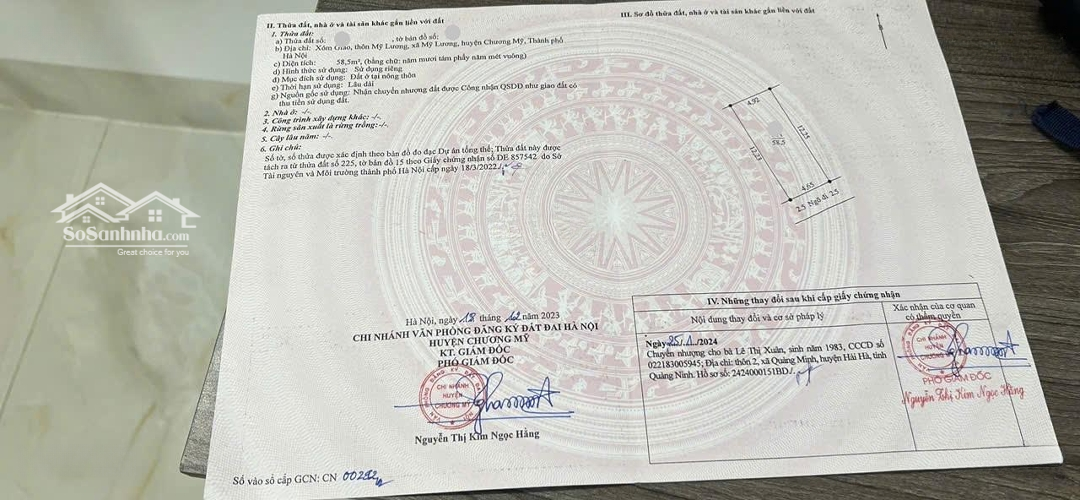 II. Thửa đất, nhà ở và tài sản khác gắn liền với đất
1. Thửa đất:
a) Thửa đất số: , tờ bản đồ số:
b) Địa chỉ: Xóm Giao, thôn Mỹ Lương, xã Mỹ Lương, huyện Chương Mỹ, Thành phố
Hà Nội
c) Diện tích: 58,5m², (bằng chữ: năm mươi tám phẩy năm mét vuông)
d) Hình thức sử dụng: Sử dụng riêng
đ) Mục đích sử dụng: Đất ở tại nông thôn
e) Thời hạn sử dụng: Lâu dài
g) Nguồn gốc sử dụng: Nhận chuyển nhượng đất được Công nhận QSDĐ như giao đất có
thu tiền sử dụng đất.
2. Nhà ở: -/-.
3. Công trình xây dựng khác: -/-.
4. Rừng sản xuất là rừng trồng: -/-.
5. Cây lâu năm: -/-.
6. Ghi chú:
Số tờ, số thửa được xác định theo bản đồ đo đạc Dự án tổng thể; Thửa đất này được
tách ra từ thửa đất số 225, tờ bản đồ 15 theo Giấy chứng nhận số DE 857542 do Sở
Tài nguyên và Môi trường thành phố Hà Nội cấp ngày 18/3/2022
SoSanhnha.com
Great choice for you
Hà Nội, ngày 18 tháng 12 năm 2023
CHI NHÁNH VĂN PHÒNG ĐĂNG KÝ ĐẤT ĐAI HÀ NỘI
HUYỆN CHƯƠNG MỸ
KT. GIÁM ĐỐC
PHÓ GIÁM ĐỐC
CHI NHÁNH
HUYỆN
CHƯƠNG MỸ
Nguyễn Thị Kim Ngọc Hằng
Số vào sổ cấp GCN: CN 00292
III. Sơ đồ thửa đất, nhà ở và tài sản khác gắn liền với đất
4.92
12.35
58.5
12.23
4.65
2.5 Ngõ đi 2.5
IV. Những thay đổi sau khi cấp giấy chứng nhận
Nội dung thay đổi và cơ sở pháp lý
Xác nhận của cơ quan
có thẩm quyền
Ngày 25/1/2024
Chuyển nhượng cho bà Lê Thị Xuân, sinh năm 1983, CCCD số
022183005945; Địa chỉ: thôn 2, xã Quảng Minh, huyện Hải Hà, tỉnh
Quảng Ninh. Hồ sơ số: 2424000151BD/.
CHI NHÁNH
HUYỆN
CHƯƠNG MỸ
PHÓ GIÁM ĐỐC
Nguyễn Thị Kim Ngọc Hằng